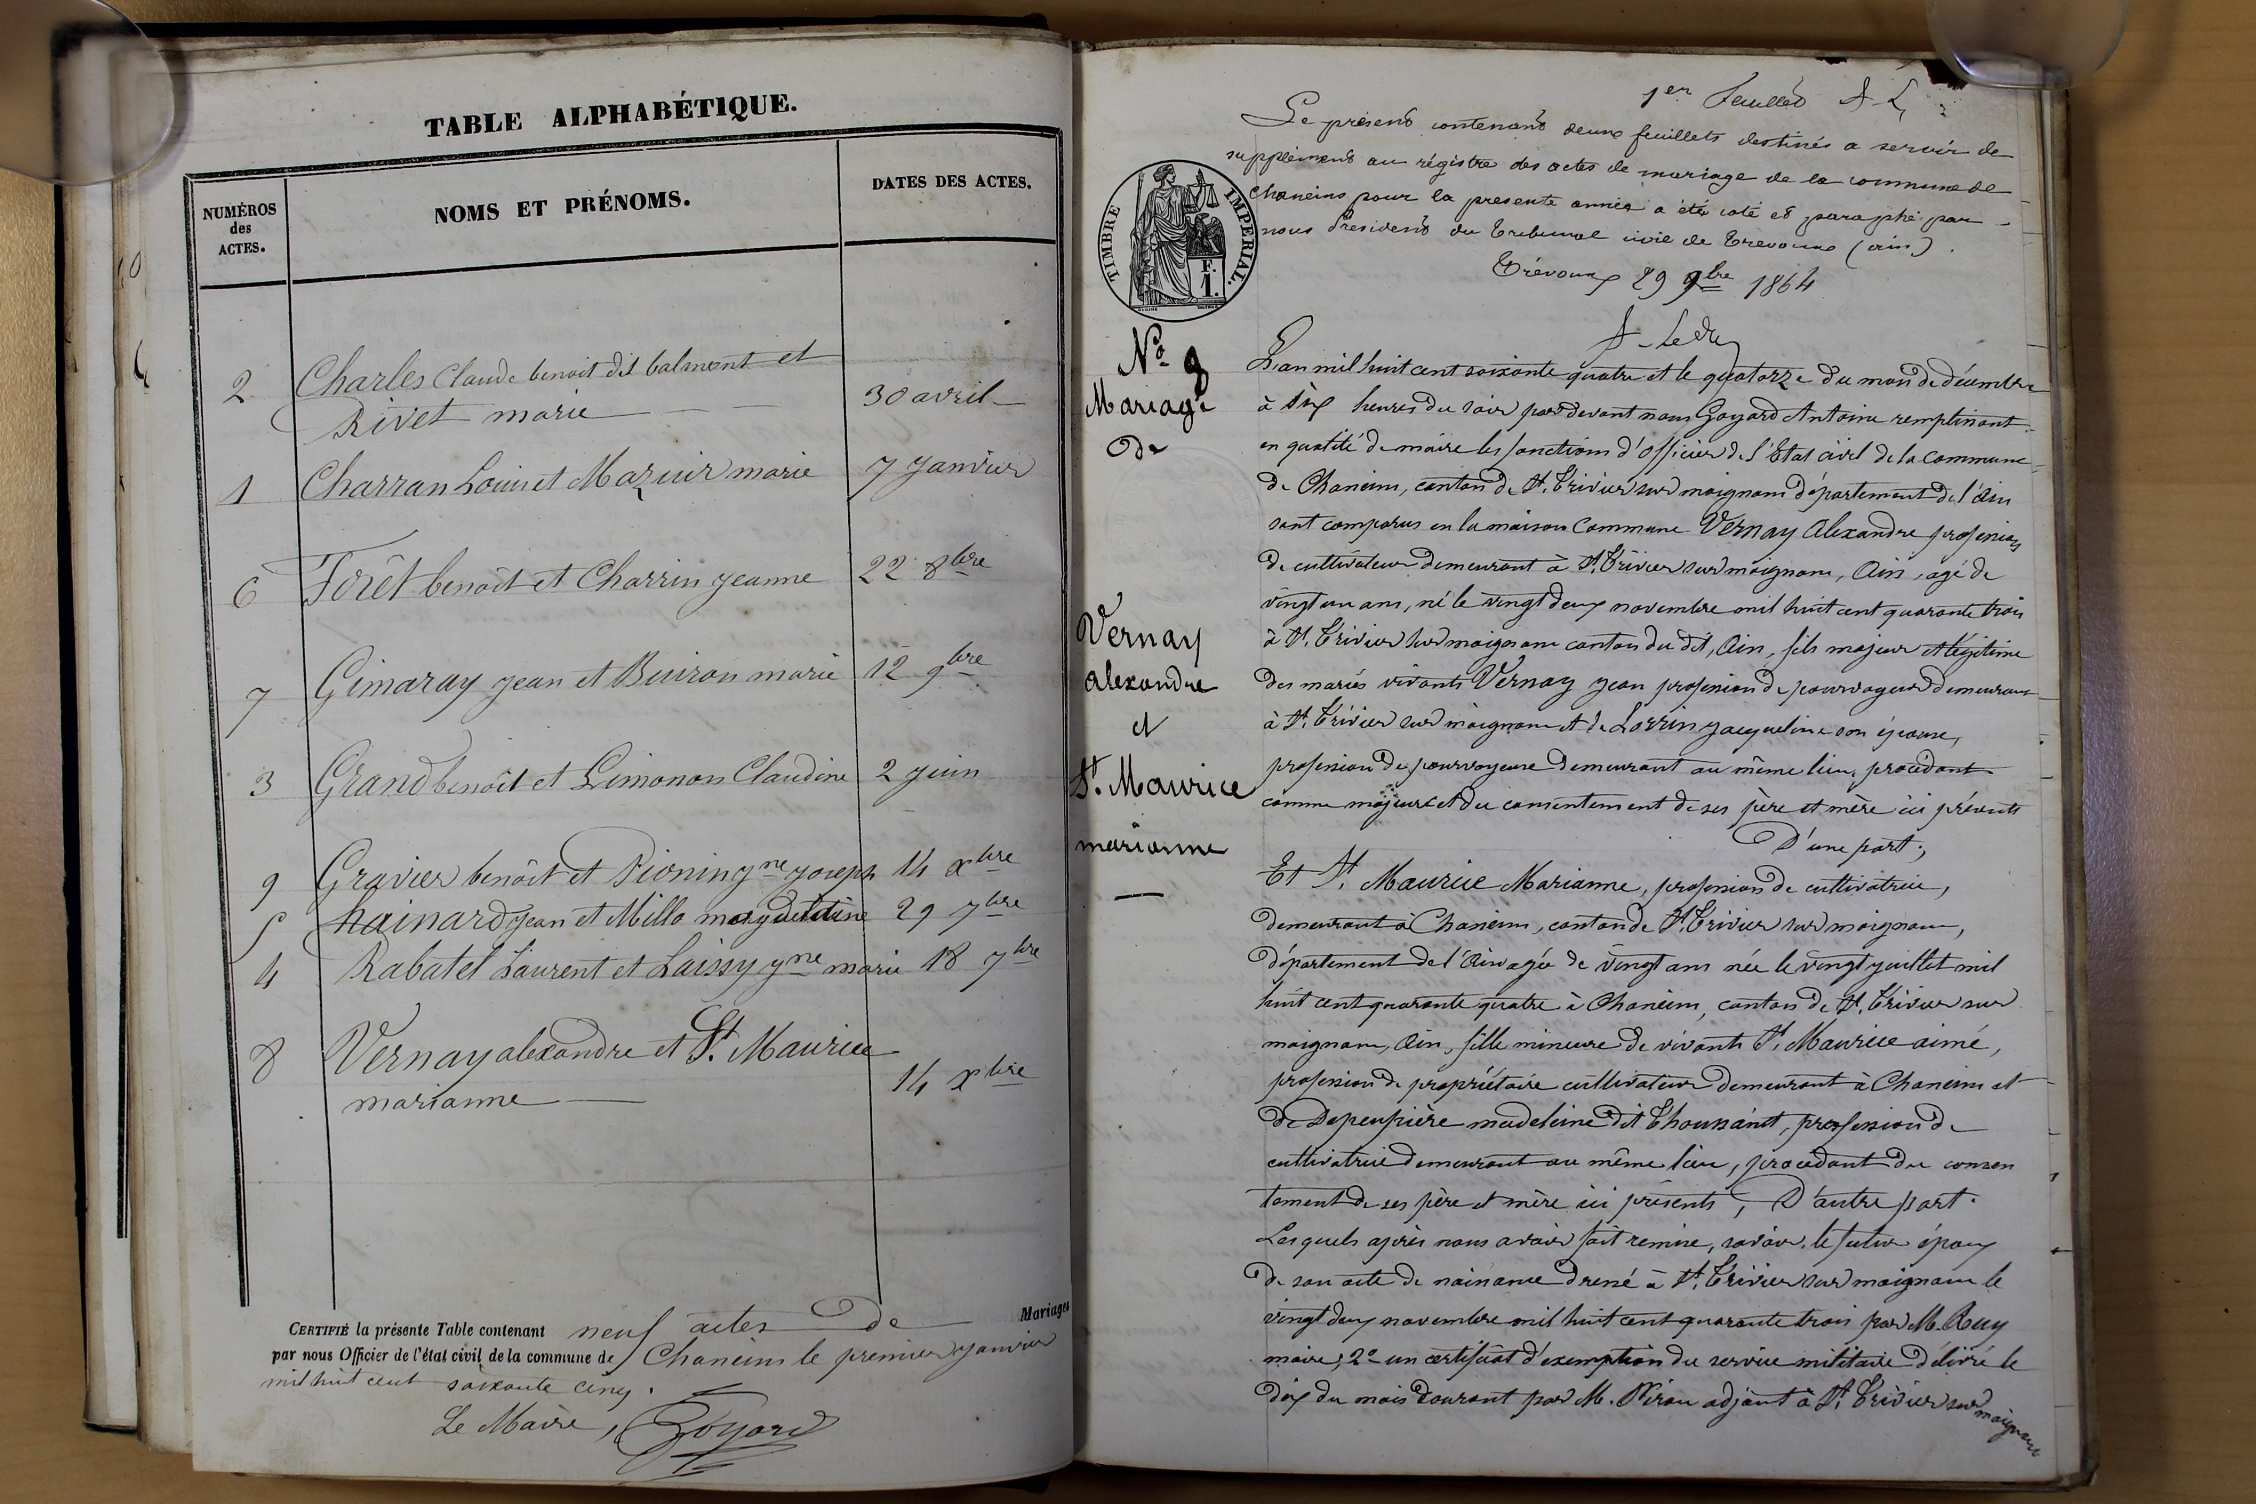 TABLE ALPHABÉTIQUE.
NUMÉROS des ACTES.
NOMS ET PRÉNOMS.
DATES DES ACTES.
2 Charles Claude benoit dit balmont et
Rivet marie 30 avril
1 Charran Louis et Mazuir marie 7 janvier
6 Forêt benoît et Charrin jeanne 22 8bre
7 Gimaray jean et Buiron marie 12 9bre
3 Grand benoît et Limonon Claudine 2 juin
9 Gravier benoît et Pionin jne joseph 14 xbre
5 hainard jean et Millo 29 7bre
4 Rabatel Laurent et Laissy jne marie 18 7bre
8 Vernay alexandre et St. Maurice
marianne 14 xbre
Mariages
CERTIFIÉ la présente Table contenant neuf actes de
par nous Officier de l'état civil de la commune de Chaneins le premier janvier
mil huit cent soixante cinq.
Le Maire, Goyard
1er feuillet A-L
Le present contenant deux feuillets destinés a servir de
supplement au régistre des actes de mariage de la commune de
Chaneins pour la presente année a été coté et paraphé par
nous President du Tribunal civil de Trevoux (ain).
Trévoux 29 9bre 1864
TIMBRE IMPERIAL.
F.
1.
No 8
Mariage
De
Vernay
alexandre
et
St. Maurice
marianne
L'an mil huit cent soixante quatre et le quatorze du mois de décembre
à six heures du soir par devant nous Goyard Antoine remplissant
en qualité de maire les fonctions d'officier de l'Etat civil de la commune
de Chaneins, canton de St. Trivier sur moignans département de l'Ain
sont comparus en la maison Commune Vernay Alexandre profession
de cultivateur demeurant à St. Trivier sur moignans, Ain, agé de
vingt un ans, né le vingt deux novembre mil huit cent quarante trois
à St. Trivier sur moignans canton du dit, Ain, fils majeur et légitime
des mariés vivants Vernay jean profession de pourvoyeur demeurant
à St. Trivier sur moignans et de Lorrin jacqueline son épouse,
profession de pourvoyeuse demeurant au même lieu, procédant
comme majeur et du consentement de ses père et mère ici présents
D'une part;
Et St. Maurice Marianne, profession de cultivatrice,
demeurant à Chaneins, canton de St. Trivier sur moignans,
département de l'Ain agée de vingt ans née le vingt juillet mil
huit cent quarante quatre à Chaneins, canton de St. Trivier sur
moignans, Ain, fille mineure de vivants St. Maurice aimé,
profession de propriétaire cultivateur demeurant à Chaneins et
de Depeupière madeleine dit Thoussaint, profession de
cultivatrice demeurant au même lieu, procédant du consen
tement de ses père et mère ici présents, D'autre part.
Lesquels après nous avoir fait remise, savoir, le futur époux
de son acte de naissance dressé à St. Trivier sur moignans le
vingt deux novembre mil huit cent quarante trois par M. Ruy
maire; 2o un certificat d'exemption du service militaire délivré le
dix du mois courant par M. Piron adjoint à St. Trivier sur moignans